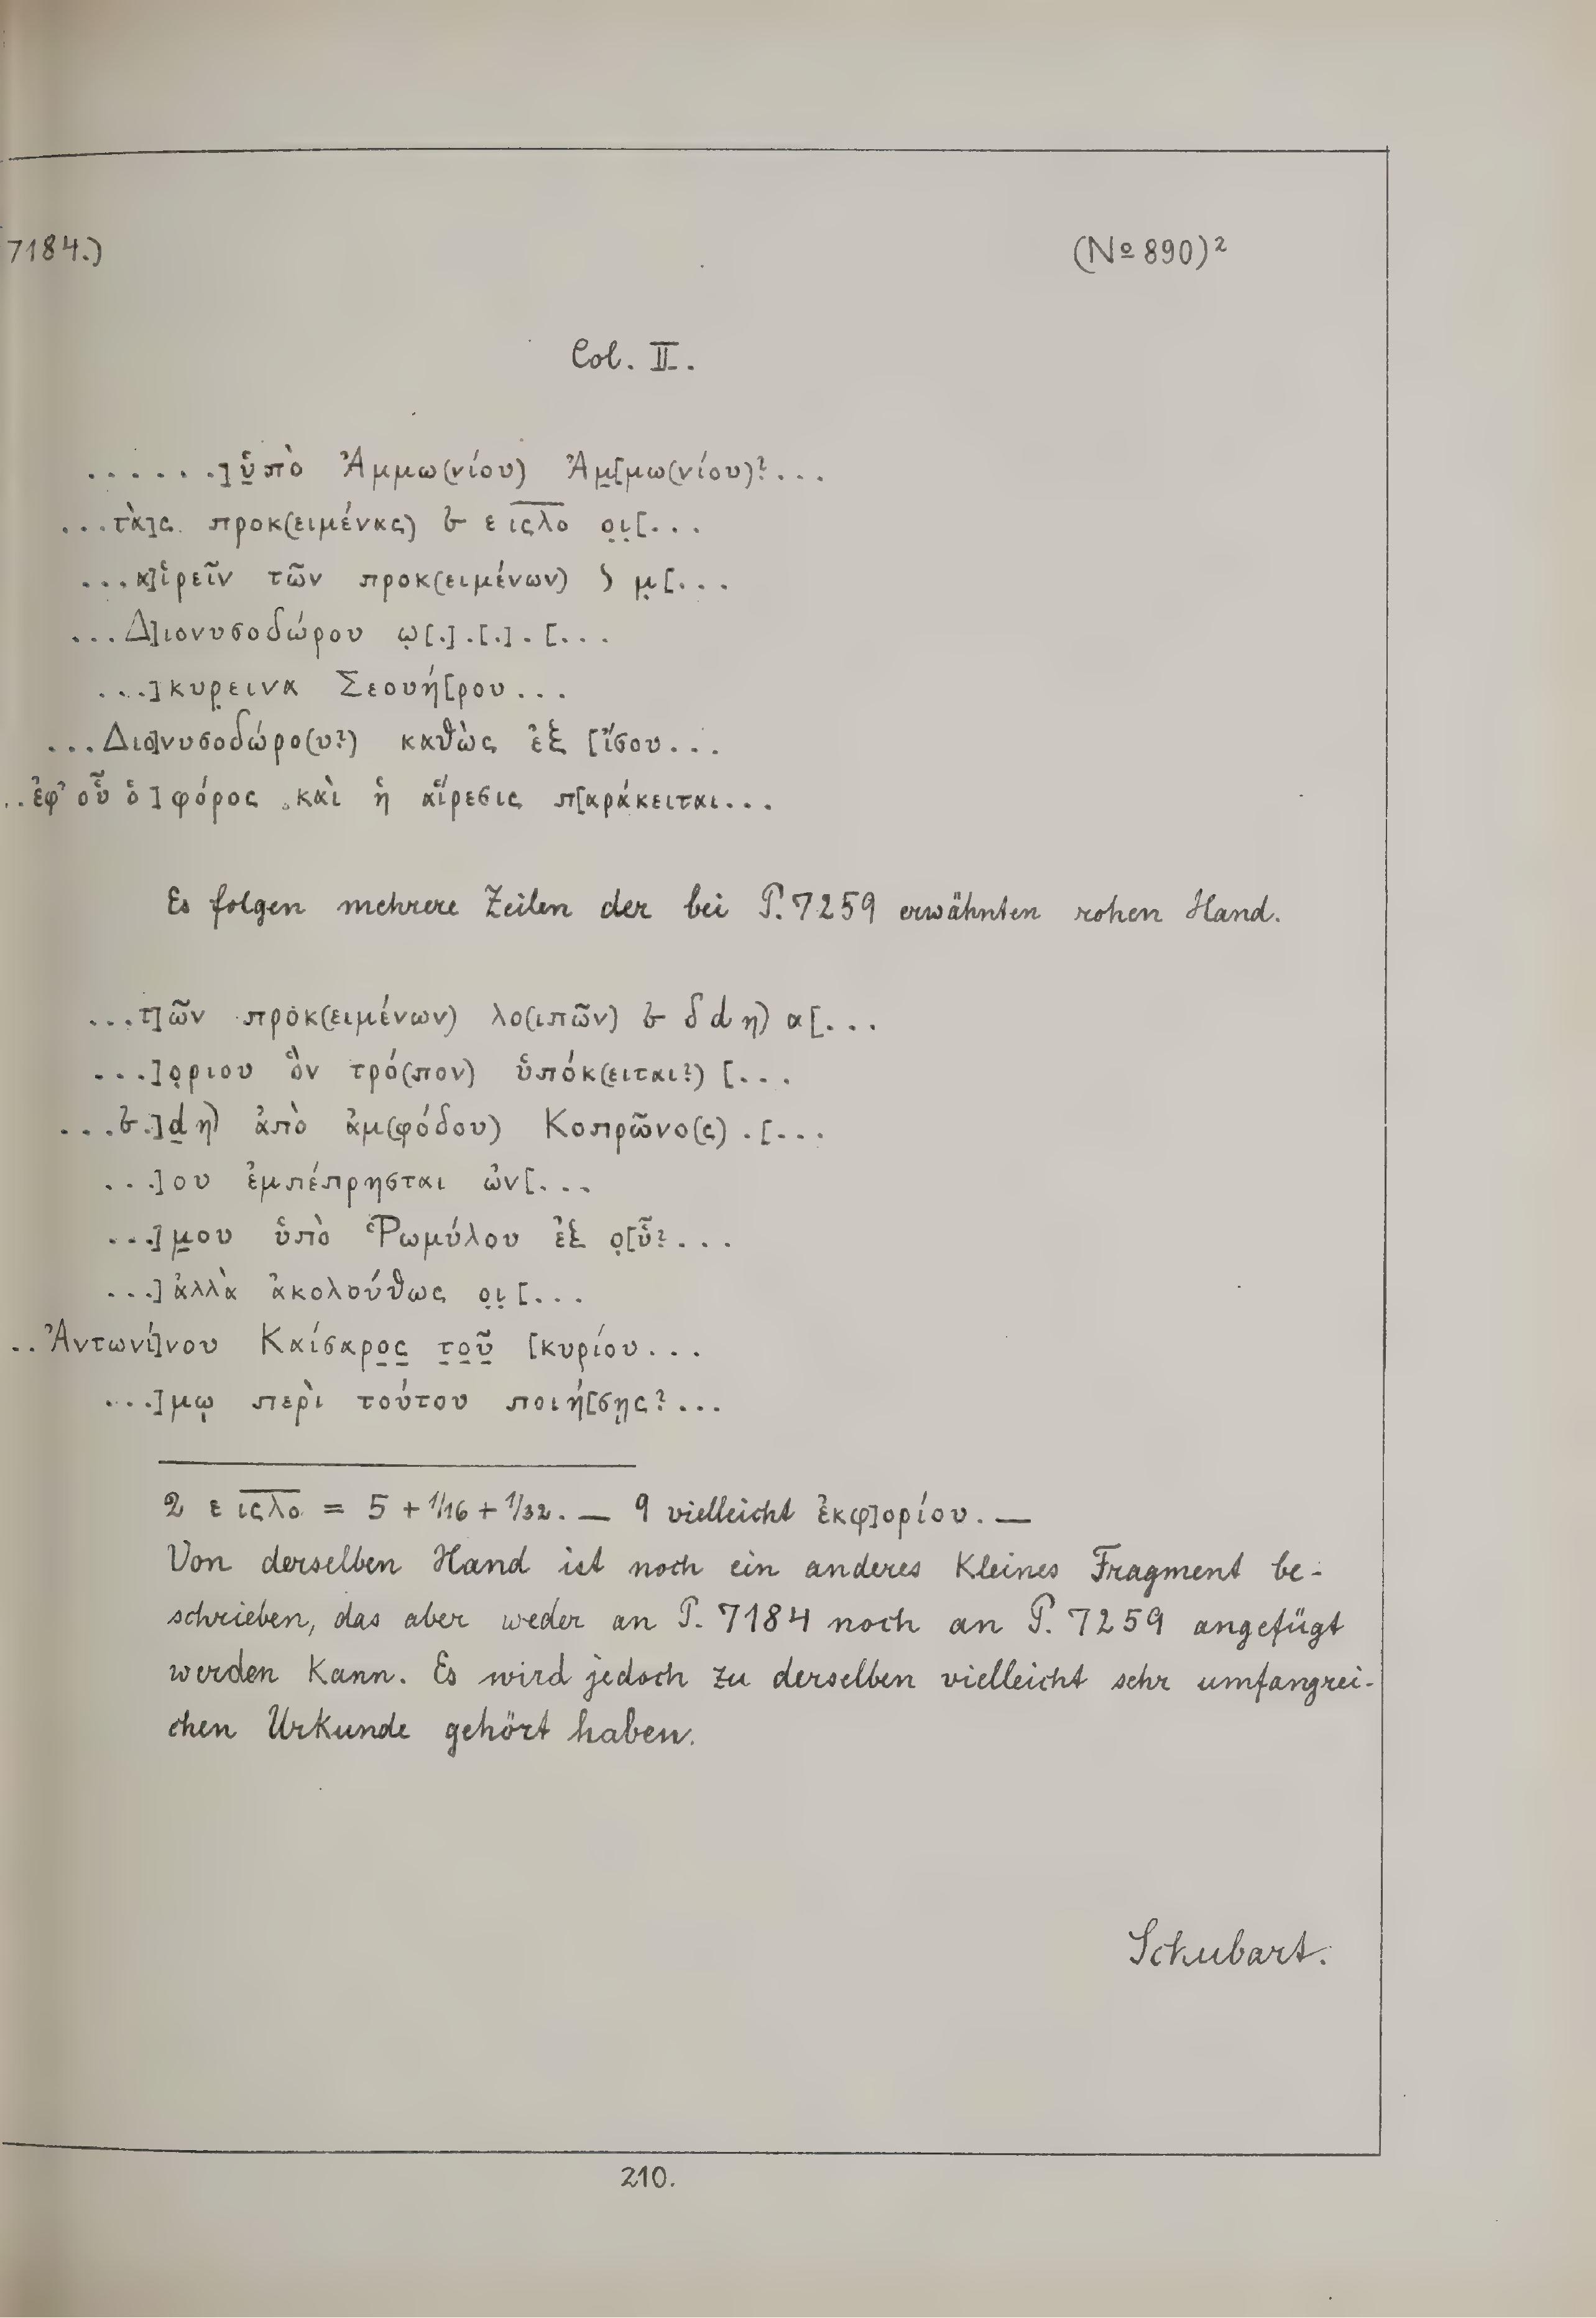 7184.) (No 890)²
Col. II.
. . . . . .]ὑ̣πὸ Ἀμμω(νίου) Ἀμ̣[μω(νίου)? . . .
. . . τὰ]ς προκ(ειμένας) ε ιϛλο ο̣ι̣[. . .
. . . α]ἱρεῖν τῶν προκ(ειμένων) μ̣[. . .
. . . Δ]ιονυσοδώρου ω̣[.] . [.] . [. . .
. . .]κυρ̣εινα Σεουή[ρου . . .
. . . Διο]νυσοδώρο(υ?) καθὼς ἐξ [ἴσου . . .
. . ἐφ' οὗ ὁ] φόρος καὶ ἡ αἵρεσις π[αράκειται . . .
Es folgen mehrere Zeilen der bei P. 7259 erwähnten rohen Hand.
. . . τ]ῶν προκ(ειμένων) λο(ιπῶν) δ d η) α[. . .
. . .]ο̣ριου ὃν τρό(πον) ὑπόκ(ειται?) [. . .
. . . .]d̲ η) ἀπὸ ἀμ(φόδου) Κοπρῶνο(ς) . [. . .
. . .]ου ἐμπέπρησται ὠν[. . .
. . .]μ̣ου ὑπὸ Ῥωμύλου ἐξ ο̣[ὗ? . . .
. . .] ἀλλὰ ἀκολούθως ο̣ι̣[. . .
. . Ἀντωνί]νου Καίσαρο̣ς̣ τ̣ο̣ῦ̣ [κυρίου . . .
. . .]μῳ περὶ τούτου ποιή[σῃς? . . .
2 ε ιϛλο = 5 + 1/16 + 1/32. — 9 vielleicht ἐκφ]ορίου. —
Von derselben Hand ist noch ein anderes kleines Fragment be-
schrieben, das aber weder an P. 7184 noch an P. 7259 angefügt
werden kann. Es wird jedoch zu derselben vielleicht sehr umfangrei-
chen Urkunde gehört haben.
Schubart.
210.